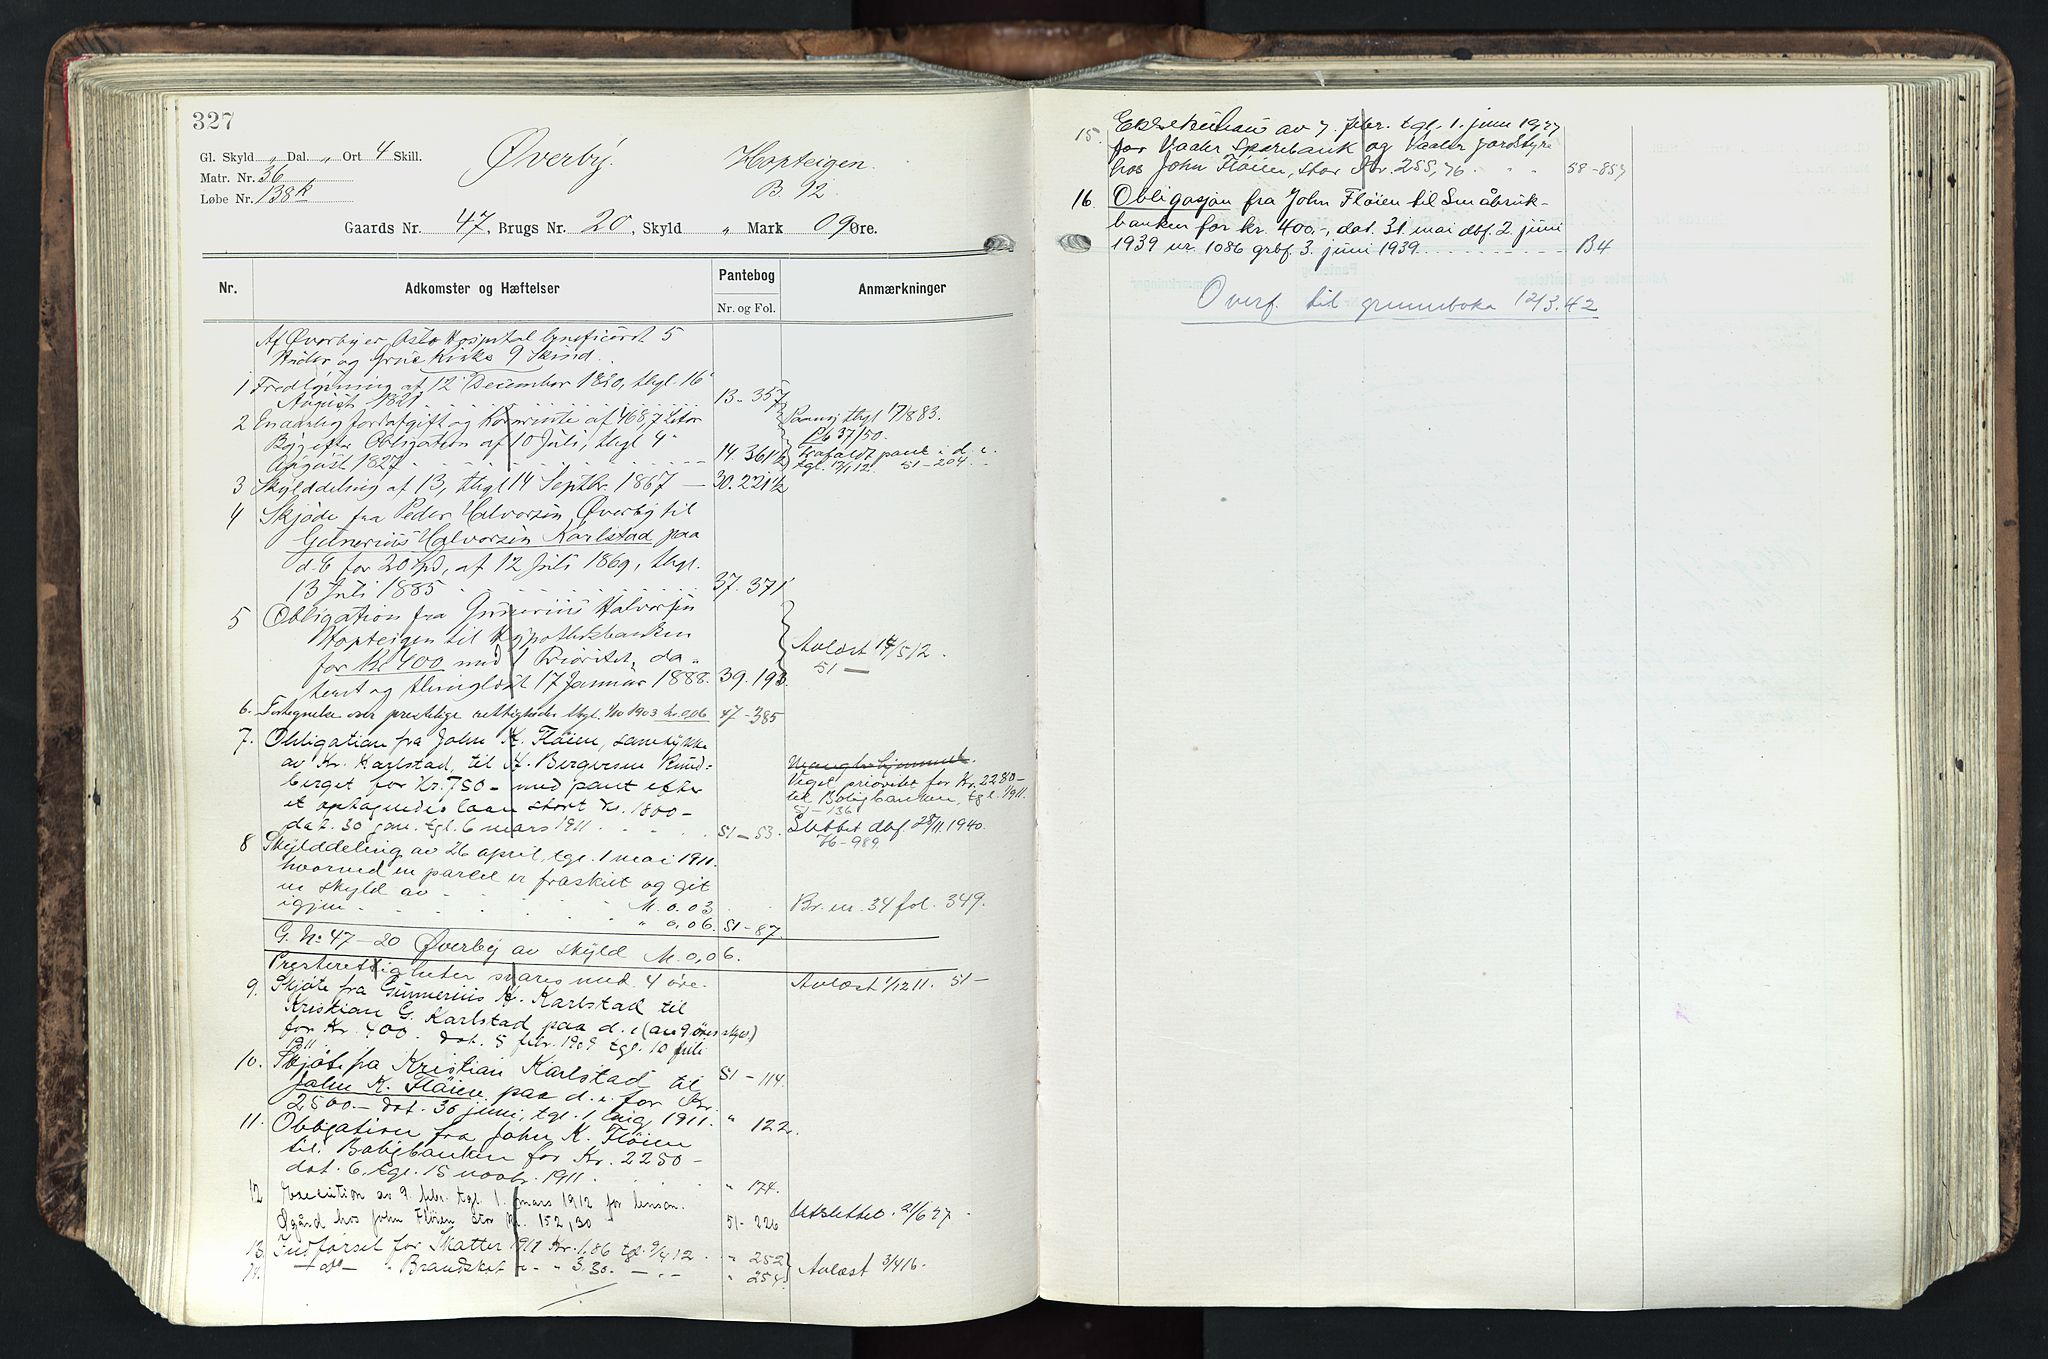 327
Gl. Skyld „ Dal. „ Ort 4 Skill.
Matr. Nr. 36
Løbe Nr. 138k
Øverby.
Hopteigen.
B. 12
Gaards Nr. 47, Brugs Nr. 20, Skyld „ Mark 09 Øre.
Nr.
Adkomster og Hæftelser
Pantebog
Nr. og Fol.
Anmærkninger
Af Øverby er Oslo Hospital beneficeret 5
Huder og Grue Kirke 9 Skind.
1 Fredlysning af 12 December 1820, thgl. 16
August 1821 13-357
2 En aarlig Jordafgift og Kornrente af 468,7 Liter
Byg efter Obligation af 10 Juli, thgl 4
August 1827 14.361½
thgl 17/1 883.
Pb 37/50.
Frafaldt pant i d. e.
tgl. 51-204.
3 Skylddeling af 13, thgl 14 Septbr. 1867 — 30.221½
4 Skjøde fra Peder Halvorsen Øverby til
Gunerius Halvorsen Karlstad paa
d. E for 20 Spd, af 12 Juli 1869, thgl.
13 Juli 1885 37.371
5 Obligation fra Gunerius Halvorsen
Hopteigen til Hypothekbanken
for Kr 400 med 1 Prioritet, da-
teret og thinglæst 17 Januar 1888. 39.193.
Avlæst 14/5 12.
51 —
6. Fortegnelse over prestelige rettigheder thgl. 1/10 1903 kr. 0,06 47-385
7. Obligation fra John K. Fløien, samtykke
av Kr. Karlstad, til H. Bergersen Rund-
berget for Kr. 750 - med pant efter
et optagendes laan stort Kr. 1800 -
dat. 30 jan. tgl. 6 mars 1911. 51-53.
Mangler hjemmel.
Veget prioritet for Kr. 2280-
til Boligbanken, tgl. 1911.
51-136
Slettet dbf 28/11.1940.
76-989
8 Skylddeling av 26 april, tgl. 1 mai 1911.
hvorved en parcel er fraskilt og git
en skyld av M. 0.03
igjen „ 0,06. 51-87.
Br. nr. 34 fol. 349.
G. No 47-20 Øverby av skyld M. 0,06.
Presterettigheter svares med 4 øre.
9. Skjøte fra Gunnerius H. Karlstad til
Kristian G. Karlstad paa d. e (av 9 øres skyld)
for Kr. 400 dat. 5 febr. 1909 tgl. 10 juli
1911. 51-114.
Avlæst 1/12 11. 51-
10. Skjøte fra Kristian Karlstad til
John K. Fløien paa d. e. for Kr.
2500.- dat. 30 juni, tgl. 1 aug 1911. „ 122.
11. Obligation fra John K. Fløien
til Boligbanken for Kr. 2250-
dat. 6. tgl. 15 novbr. 1911. „ 174.
12 Execution av 9. febr. tgl. 1. mars 1912 for
hos John Fløien stor kr. 152,30 51-226
Utslettet. 21/6 27.
13. Indførsel for Skatter 1911 Kr. 1.86 tgl. 9/4 12. „ 252
14. — do — „ Brandskat „ - „ 3.30. — „ - „ 254.
Avlæst 3/4 16.
15. Exsekution av 7. febr. tgl. 1. juni 1927
for Vaaler Sparebank og Vaaler Jordstyre
hos John Fløien, stor Kr. 255,76. 58-857
16. Obligasjon fra John Fløien til Småbruk-
banken for kr. 400.-, dat. 31. mai dbf. 2. juni
1939 nr. 1086 grbf. 3. juni 1939. B4
Overf. til grunnboka 12/3.42